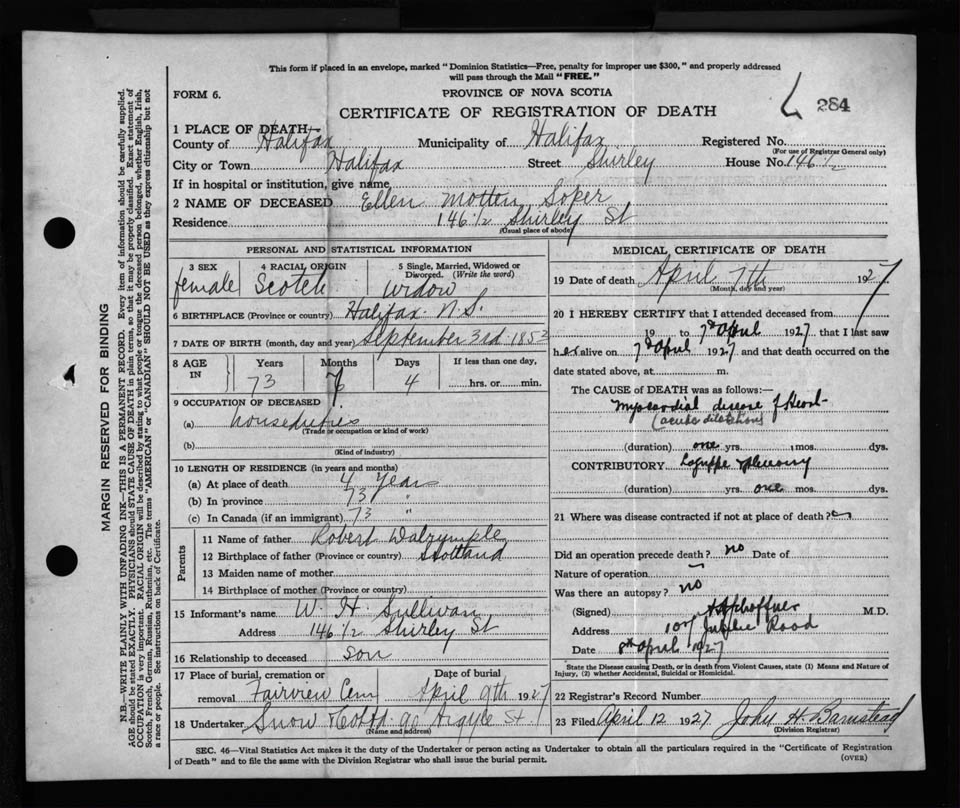 This form if placed in an envelope, marked "Dominion Statistics—Free, penalty for improper use $300," and properly addressed
will pass through the Mail "FREE."
FORM 6.
PROVINCE OF NOVA SCOTIA
CERTIFICATE OF REGISTRATION OF DEATH
284
1 PLACE OF DEATH—
County of Halifax Municipality of Halifax Registered No.
(For use of Registrar General only)
City or Town Halifax Street Shirley House No. 146 1/2
If in hospital or institution, give name
2 NAME OF DECEASED Ellen Motten Soper
Residence 146 1/2 Shirley St
(Usual place of abode)
PERSONAL AND STATISTICAL INFORMATION
3 SEX 4 RACIAL ORIGIN 5 Single, Married, Widowed or
Divorced. (Write the word)
female Scotch widow
6 BIRTHPLACE (Province or country) Halifax N.S.
7 DATE OF BIRTH (month, day and year) September 3rd 1853
8 AGE IN Years Months Days If less than one day,
73 7 4 hrs. or min.
9 OCCUPATION OF DECEASED
(a) houseduties
(Trade or occupation or kind of work)
(b)
(Kind of industry)
10 LENGTH OF RESIDENCE (in years and months)
(a) At place of death 4 years
(b) In province 73 "
(c) In Canada (if an immigrant) 73 "
Parents
11 Name of father Robert Dalrymple
12 Birthplace of father (Province or country) Scotland
13 Maiden name of mother
14 Birthplace of mother (Province or country)
15 Informant's name W. H. Sullivan
Address 146 1/2 Shirley St
16 Relationship to deceased son
17 Place of burial, cremation or Date of burial
removal Fairview Cem April 9th 1927
18 Undertaker Snow & Co Ltd 90 Argyle St
(Name and address)
MEDICAL CERTIFICATE OF DEATH
19 Date of death April 7th 1927
(Month, day and year)
20 I HEREBY CERTIFY that I attended deceased from
19 to 7th April 1927 that I last saw
her alive on 7th April 1927 and that death occurred on the
date stated above, at m.
The CAUSE OF DEATH was as follows:—
Myocardial disease of Heart
(acute dilatation)
(duration) one yrs. mos. dys.
CONTRIBUTORY Lagrippe
(duration) yrs. one mos. dys.
21 Where was disease contracted if not at place of death?
Did an operation precede death? no Date of
Nature of operation
Was there an autopsy? no
(Signed) M.D.
Address 107 Jubilee Road
Date 8th April 1927
State the Disease causing Death, or in death from Violent Causes, state (1) Means and Nature of
Injury, (2) whether Accidental, Suicidal or Homicidal.
22 Registrar's Record Number
23 Filed April 12 1927. John H. Barnstead
(Division Registrar)
SEC. 46—Vital Statistics Act makes it the duty of the Undertaker or person acting as Undertaker to obtain all the particulars required in the "Certificate of Registration
of Death" and to file the same with the Division Registrar who shall issue the burial permit.
(OVER)
MARGIN RESERVED FOR BINDING
N.B.—WRITE PLAINLY WITH UNFADING INK—THIS IS A PERMANENT RECORD. Every item of information should be carefully supplied.
AGE should be stated EXACTLY. PHYSICIANS should STATE CAUSE OF DEATH in plain terms, so that it may be properly classified. Exact statement of
OCCUPATION is very important. RACIAL ORIGIN will be described by stating to what people or tongue the deceased person belonged, whether English, Irish,
Scotch, French, German, Russian, Ruthenian, etc. The terms "AMERICAN" or "CANADIAN" SHOULD NOT BE USED as they express citizenship but not
a race or people. See instructions on back of Certificate.